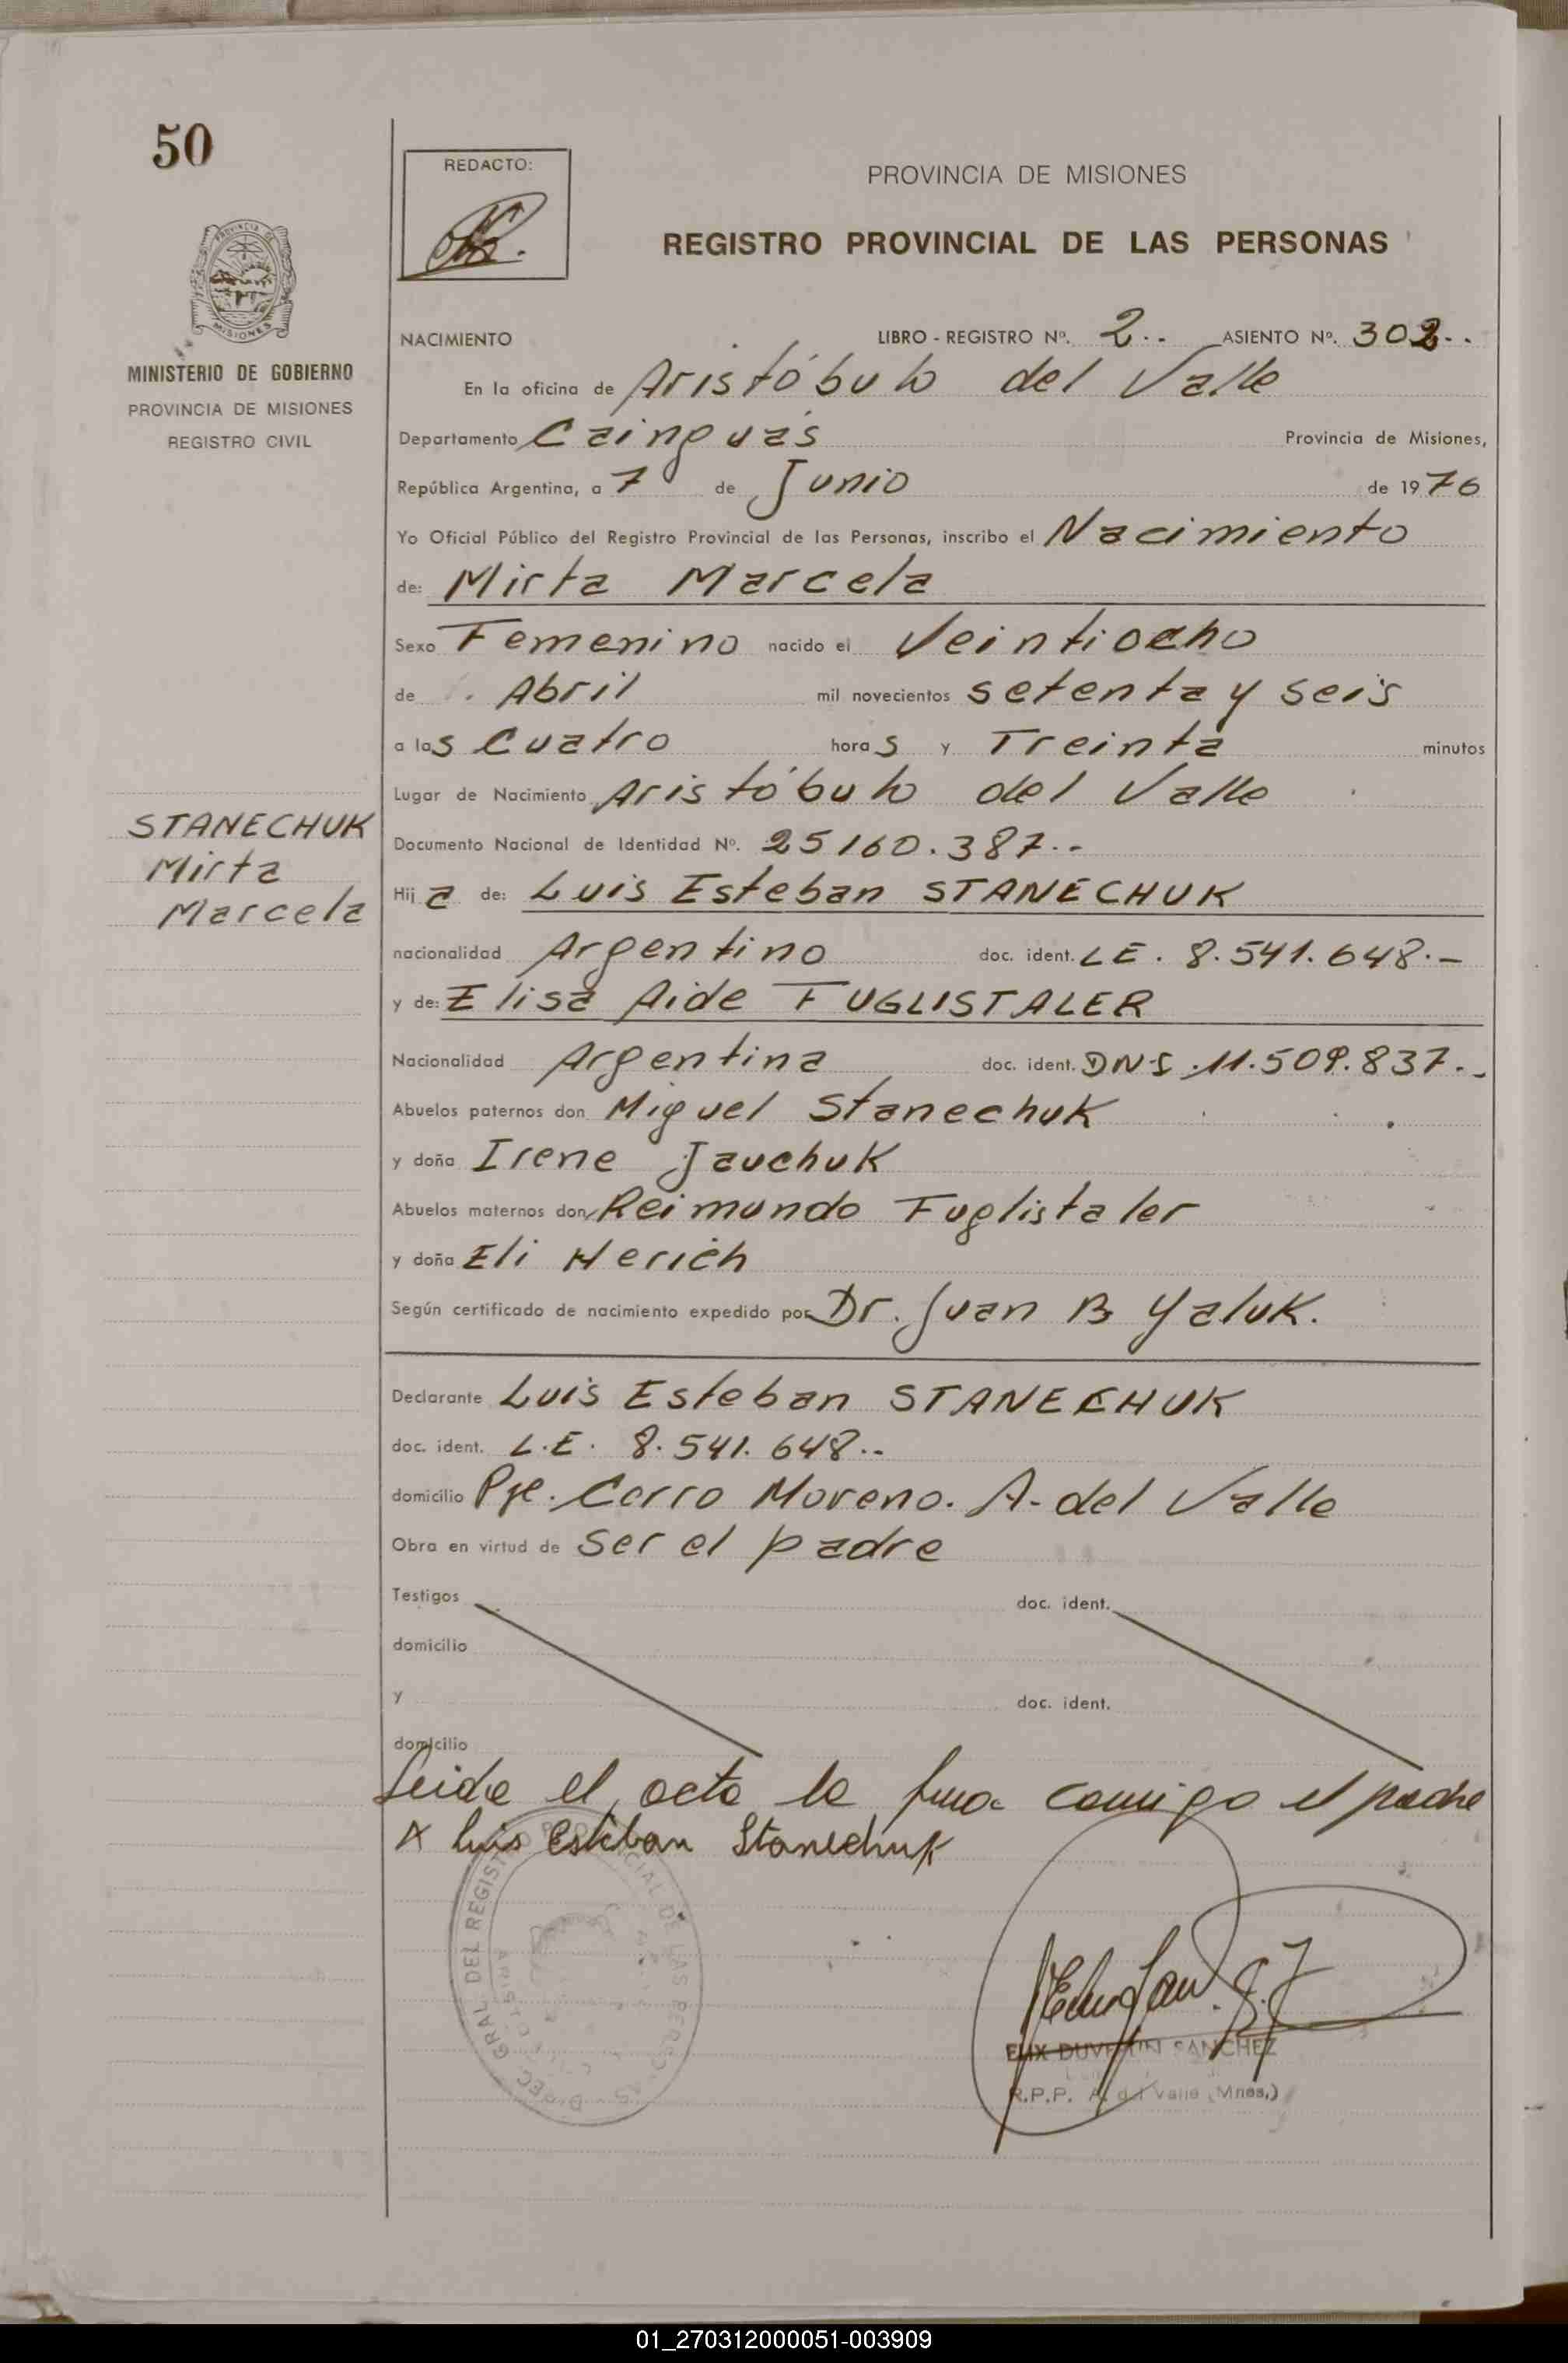 50
REDACTO:
PROVINCIA DE MISIONES
REGISTRO PROVINCIAL DE LAS PERSONAS
MINISTERIO DE GOBIERNO
PROVINCIA DE MISIONES
REGISTRO CIVIL
NACIMIENTO LIBRO - REGISTRO Nº. 2.. ASIENTO Nº. 302..
En la oficina de Aristóbulo del Valle
Departamento Cainguás Provincia de Misiones,
República Argentina, a 7 de Junio de 1976
Yo Oficial Público del Registro Provincial de las Personas, inscribo el Nacimiento
de: Mirta Marcela
Sexo Femenino nacido el Veintiocho
de Abril mil novecientos setenta y seis
a las Cuatro horas y Treinta minutos
Lugar de Nacimiento Aristóbulo del Valle
STANECHUK
Mirta
Marcela
Documento Nacional de Identidad Nº. 25160.387..
Hija de: Luis Esteban STANECHUK
nacionalidad Argentino doc. ident. LE. 8.541.648.-
y de: Elisa Aide FUGLISTALER
Nacionalidad Argentina doc. ident. DNI. 11.509.837..
Abuelos paternos don Miguel Stanechuk
y doña Irene Jauchuk
Abuelos maternos don Reimundo Fuglistaler
y doña Eli Herich
Según certificado de nacimiento expedido por Dr. Juan B Yaluk.
Declarante Luis Esteban STANECHUK
doc. ident. L.E. 8.541.648..
domicilio Pje. Cerro Moreno. A. del Valle
Obra en virtud de ser el padre
Testigos doc. ident.
domicilio
y doc. ident.
domicilio
Leida el acta la firma conmigo el padre
X Luis Esteban Stanechuk
DIREC. GRAL. DEL REGISTRO PROVINCIAL DE LAS PERSONAS
SANCHEZ
R.P.P. A. del Valle (Mnes.)
01_270312000051-003909